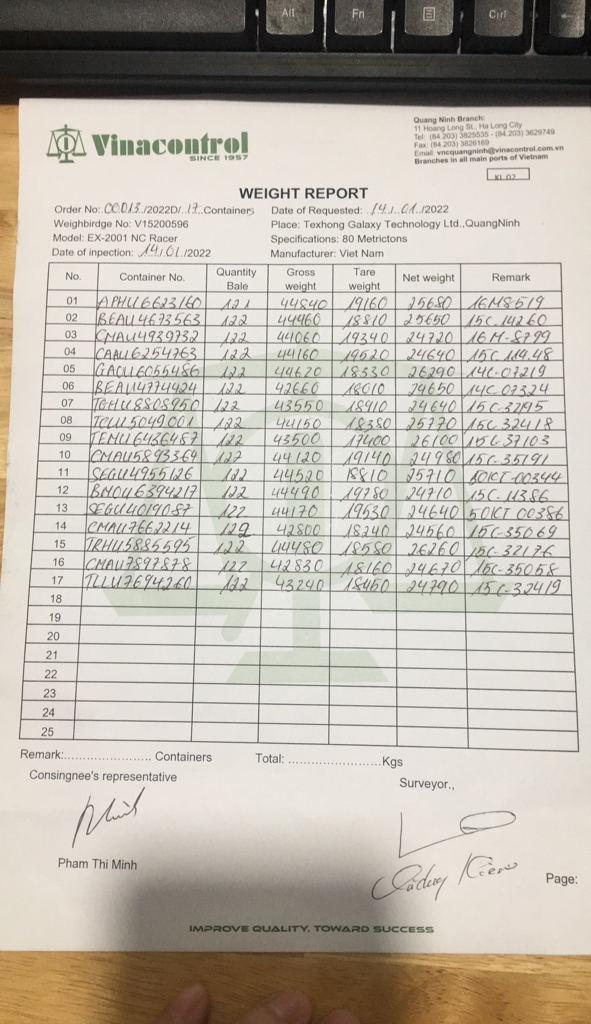 Alt Fn Ctrl
Vinacontrol
SINCE 1957
Quang Ninh Branch:
11 Hoang Long St., Ha Long City
Tel: (84.203) 3825535 - (84.203) 3629749
Fax: (84.203) 3826169
Email: vncquangninh@vinacontrol.com.vn
Branches in all main ports of Vietnam
WEIGHT REPORT
Order No: 00D13./2022D/..17..Containers Date of Requested: .14./..01../2022
Weighbirdge No: V15200596 Place: Texhong Galaxy Technology Ltd.,QuangNinh
Model: EX-2001 NC Racer Specifications: 80 Metrictons
Date of inpection: 14./01./2022 Manufacturer: Viet Nam
No. Container No. Quantity Bale Gross weight Tare weight Net weight Remark
01 APHU6623160 121 44840 19160 25680 16M8519
02 BEAU4673563 122 44460 18810 25650 15C.14260
03 CMAU4939732 122 44060 19340 24720 16M-8799
04 CAAU6254763 122 44160 19520 24640 15C 114.48
05 GAOU6055486 122 44620 18330 26290 14C-07219
06 BEAU4774424 122 42660 18010 24650 14C.07324
07 TGHU8808950 122 43550 18910 24640 15C-37295
08 TCLU5049001 122 44150 18380 25770 15C.32418
09 TEMU6436467 122 43500 17400 26100 15C 37103
10 CMAU5893364 122 44120 19140 24980 15C-35191
11 SEGU4955126 122 44520 18810 25710 50KT 00344
12 BMOU6394217 122 44490 19780 24710 15C-11386
13 SEGU4019087 122 44170 19530 24640 50KT 00386
14 CMAU7662214 122 42800 18240 24560 15C-35069
15 TRHU5885595 122 44480 18580 26260 15C-37176
16 CMAU7897878 122 42830 18160 24670 15C-35058
17 TLLU7694260 122 43240 18450 24790 15C-32419
18
19
20
21
22
23
24
25
Remark:........................ Containers Total: ........................Kgs
Consingnee's representative Surveyor.,
Pham Thi Minh
Page:
IMPROVE QUALITY, TOWARD SUCCESS